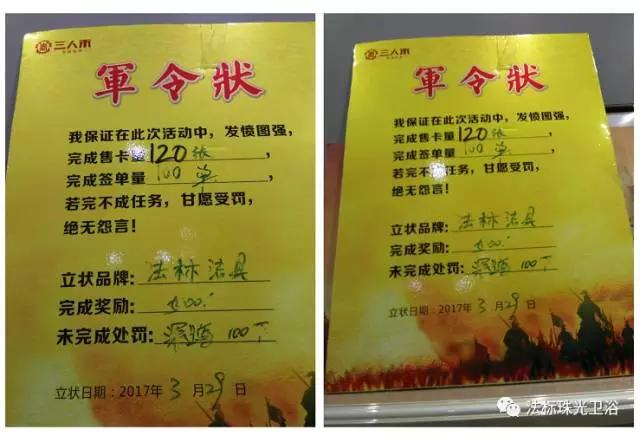 三人木
軍令狀
我保证在此次活动中，发愤图强，
完成售卡量120张，
完成签单量100单，
若完不成任务，甘愿受罚，
绝无怨言！
立状品牌：法标洁具
完成奖励：
未完成处罚：深蹲100下
立状日期：2017年3月29日
三人木
軍令狀
我保证在此次活动中，发愤图强，
完成售卡量120张，
完成签单量100单，
若完不成任务，甘愿受罚，
绝无怨言！
立状品牌：法标洁具
完成奖励：
未完成处罚：深蹲100下
立状日期：2017年3月29日
法标珠光卫浴